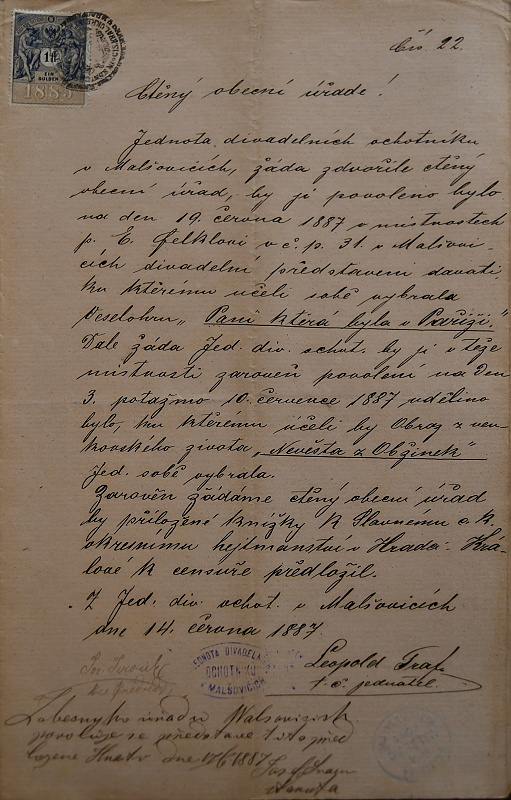 1 fl
EIN
GULDEN
1885
Čís. 22.
Ctěný obecní úřade!
Jednota divadelních ochotníku
v Malšovicích, žáda zdvořile ctěný
obecní úřad, by jí povoleno bylo
na den 19. června 1887 v místnostech
p. E. Felklovi v č. p. 31. v Malšovi-
cích divadelní představení davati,
ku kterému účeli sobě vybrala
Veselohru „Paní která byla v Paříži."
Dále žáda Jed. div. ochot. by jí v téže
místnosti zaroveň povolení na den
3. potažmo 10. července 1887 uděleno
bylo, ku kterému účeli by Obraz z ven-
kovského života „Nevěsta z Obžinek"
Jed. sobě vybrala.
Zarověn žádáme ctěný obecní úřad
by přiložené knížky k Slavnému c. k.
okresnímu hejtmanství v Hradci Krá-
lové k censuře předložil.
Z Jed. div. ochot. v Malšovicích
dne 14. června 1887.
JEDNOTA DIVADELNÍCH
OCHOTNÍKŮ
MALŠOVICÍCH
Leopold
t. č. jednatel.
povoluje se představení toto
dne 17/6 1887
Josef
starosta